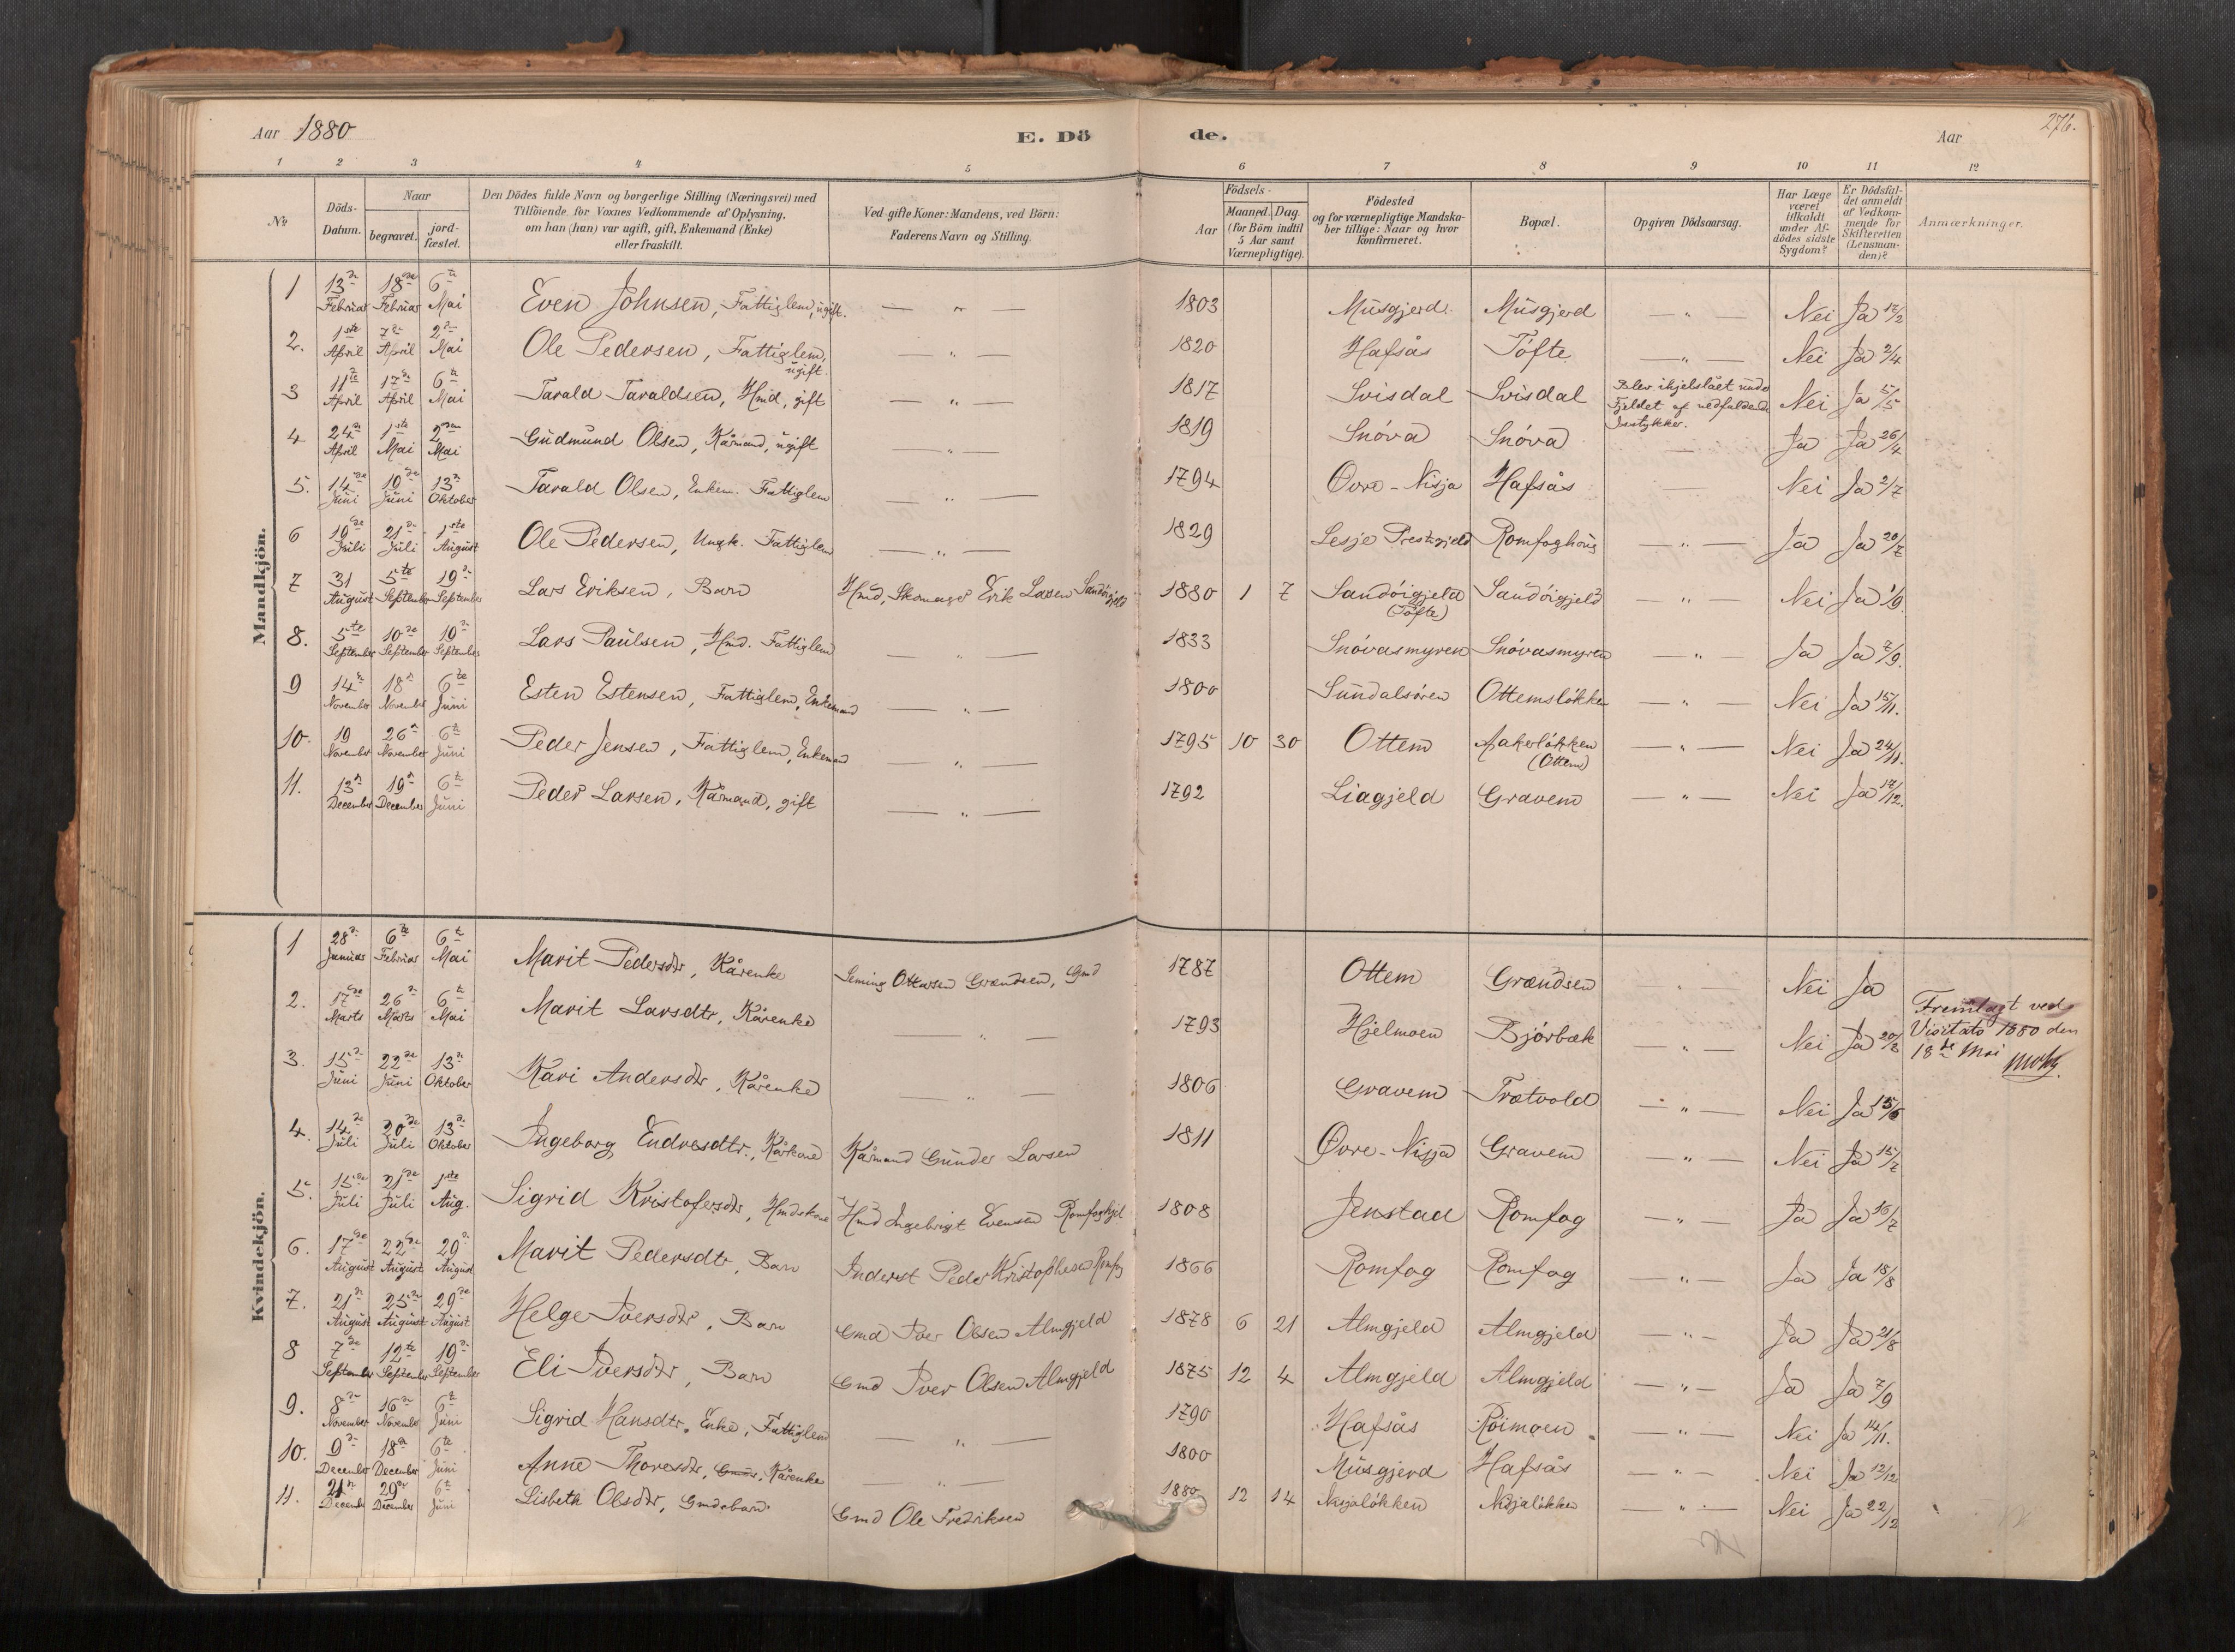 Aar 1880
E. Dö de.
Aar
276.
1 2 3 4 5 6 7 8 9 10 11 12
№
Döds-Datum.
Naar
begravet.
jord-fæstet.
Den Dödes fulde Navn og borgerlige Stilling (Næringsvei) med
Tilföiende for Voxnes Vedkommende af Oplysning,
om han (hun) var ugift, gift, Enkemand (Enke)
eller fraskilt.
Ved gifte Koner: Mandens, ved Börn:
Faderens Navn og Stilling.
Födsels-
Aar
Maaned. Dag.
(for Börn indtil
5 Aar samt
Værnepligtige).
Födested
og for værnepligtige Mandska-
ber tillige: Naar og hvor
konfirmeret.
Bopæl.
Opgiven Dödsaarsag.
Har Læge
været
tilkaldt
under Af-
dödes sidste
Sygdom?
Er Dödsfal-
det anmeldt
af Vedkom-
mende for
Skifteretten
(Lensman-
den)?
Anmærkninger.
Mandkjön.
1 13de Februar 18de Februar 6te Mai Even Johnsen, Fattiglem, ugift. — " — 1803 Musgjerd Musgjerd — " — Nei Ja 17/2
2. 1ste April 7de April 2den Mai Ole Pedersen, Fattiglem, ugift. — " — 1820 Hafsås Tofte — " — Nei Ja 2/4
3 11te April 17de April 6te Mai Tarald Taraldsen, Hmd, gift — " — 1817 Svisdal Svisdal Blev ihjelslået under Fjeldet af nedfaldende Isstykker. Nei Ja 5/5
4 24de April 1ste Mai 2den Mai Gudmund Olsen, Kårmand, ugift — " — 1819 Snóva Snóva — Ja Ja 26/4
5. 14de Juni 19de Juni 13de Oktober Tarald Olsen, Enkem. Fattiglem — " — 1794 Övre-Nisja Hafsås — Nei Ja 2/7
6 19de Juli 21de Juli 1ste August Ole Pedersen, Ungk. Fattiglem — " — 1829 Lesje Prestegjeld Romfoghóus — " — Ja Ja 20/7
7 31 August 5te September 19de September Lars Eriksen, Barn Hmd, Skomager Erik Larsen Sandóigjeld 1880 1 7 Sandóigjeld (Tofte) Sandóigjeld — " — Nei Ja 1/9.
8. 5te September 10de September 19de September Lars Paulsen, Hmd. Fattiglem — " — 1833 Snóvasmyren Snóvasmyren — " — Ja Ja 7/9.
9 14de November 18de November 6te Juni Esten Estensen, Fattiglem, Enkemand — " — 1800 Sundalsóren Ottemslókken — " — Nei Ja 15/11.
10. 19 November 26de November 6te Juni Peder Jensen, Fattiglem, Enkemand — " — 1795 10 30 Ottem Aakerlókken (Ottem) — " — Nei Ja 24/11.
11. 13de December 19de December 6te Juni Peder Larsen, Kårmand, gift — " — 1792 Liagjeld Gravem — " — Nei Ja 17/12.
Kvindekjön.
1 28de Januar 6te Februar 6te Mai Marit Pedersdtr, Kårenke Seming Ottersen Grændsen, Gmd 1787 Ottem Grændsen — " — Nei Ja
2. 17de Marts 26de Marts 6te Mai Marit Larsdtr, Kårenke — " — 1793 Hjelmoen Bjórbæk — " — Nei Ja 20/3
Fremlagt ved
Visitats 1880 den
18de Mai
3. 15de Juni 22de Juni 13de Oktober Kari Andersdtr, Kårenke — " — 1806 Gravem Trætvold — " — Nei Ja 15/6
4. 14de Juli 20de Juli 13de Oktober Ingeborg Endresdtr., Kårkone Kårmand Gunder Larsen 1811 Övre-Nisja Gravem — " — Nei Ja 15/7
5. 15de Juli 21de Juli 1ste Aug. Sigrid Kristofersdtr, Hmdskone Hmd Ingebrigt Evensen 1808 Jenstad Romfog — " — Ja Ja 16/7
6. 17de August 22de August 29de August Marit Pedersdtr, Barn Inderst Peder Kristophersen Romfog 1866 Romfog Romfog — " — Ja Ja 18/8
7. 21de August 25de August 29de August Helge Iversdtr, Barn Gmd Iver Olsen Almgjeld 1878 6 21 Almgjeld Almgjeld — " — Ja Ja 21/8
8 7de September 12te September 19de September Eli Iversdtr, Barn Gmd Iver Olsen Almgjeld 1875 12 4 Almgjeld Almgjeld — " — Ja Ja 7/9
9. 8de November 16de November 6te Juni Sigrid Hansdtr. Enke, Fattiglem — " — 1790 Hafsås Róimoen — " — Nei Ja 14/11.
10. 9de December 18de December 6te Juni Anne Thoresdtr, Kårenke — " — 1800 Musgjerd Hafsås — " — Nei Ja 12/12
11. 21de December 29de December 6te Juni Lisbeth Olsdtr, Gmdsbarn Gmd Ole Fredriksen 1880 12 14 Nisjalókken Nisjalókken — " — Nei Ja 22/12